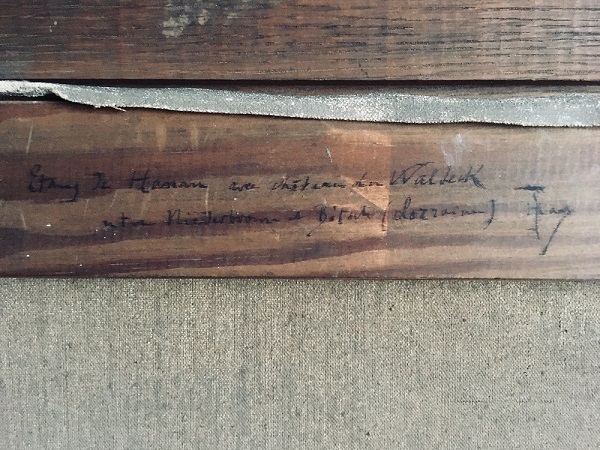 Etang de Hanau avec château du Waldeck
entre Niederbronn & Bitche (Lorraine)